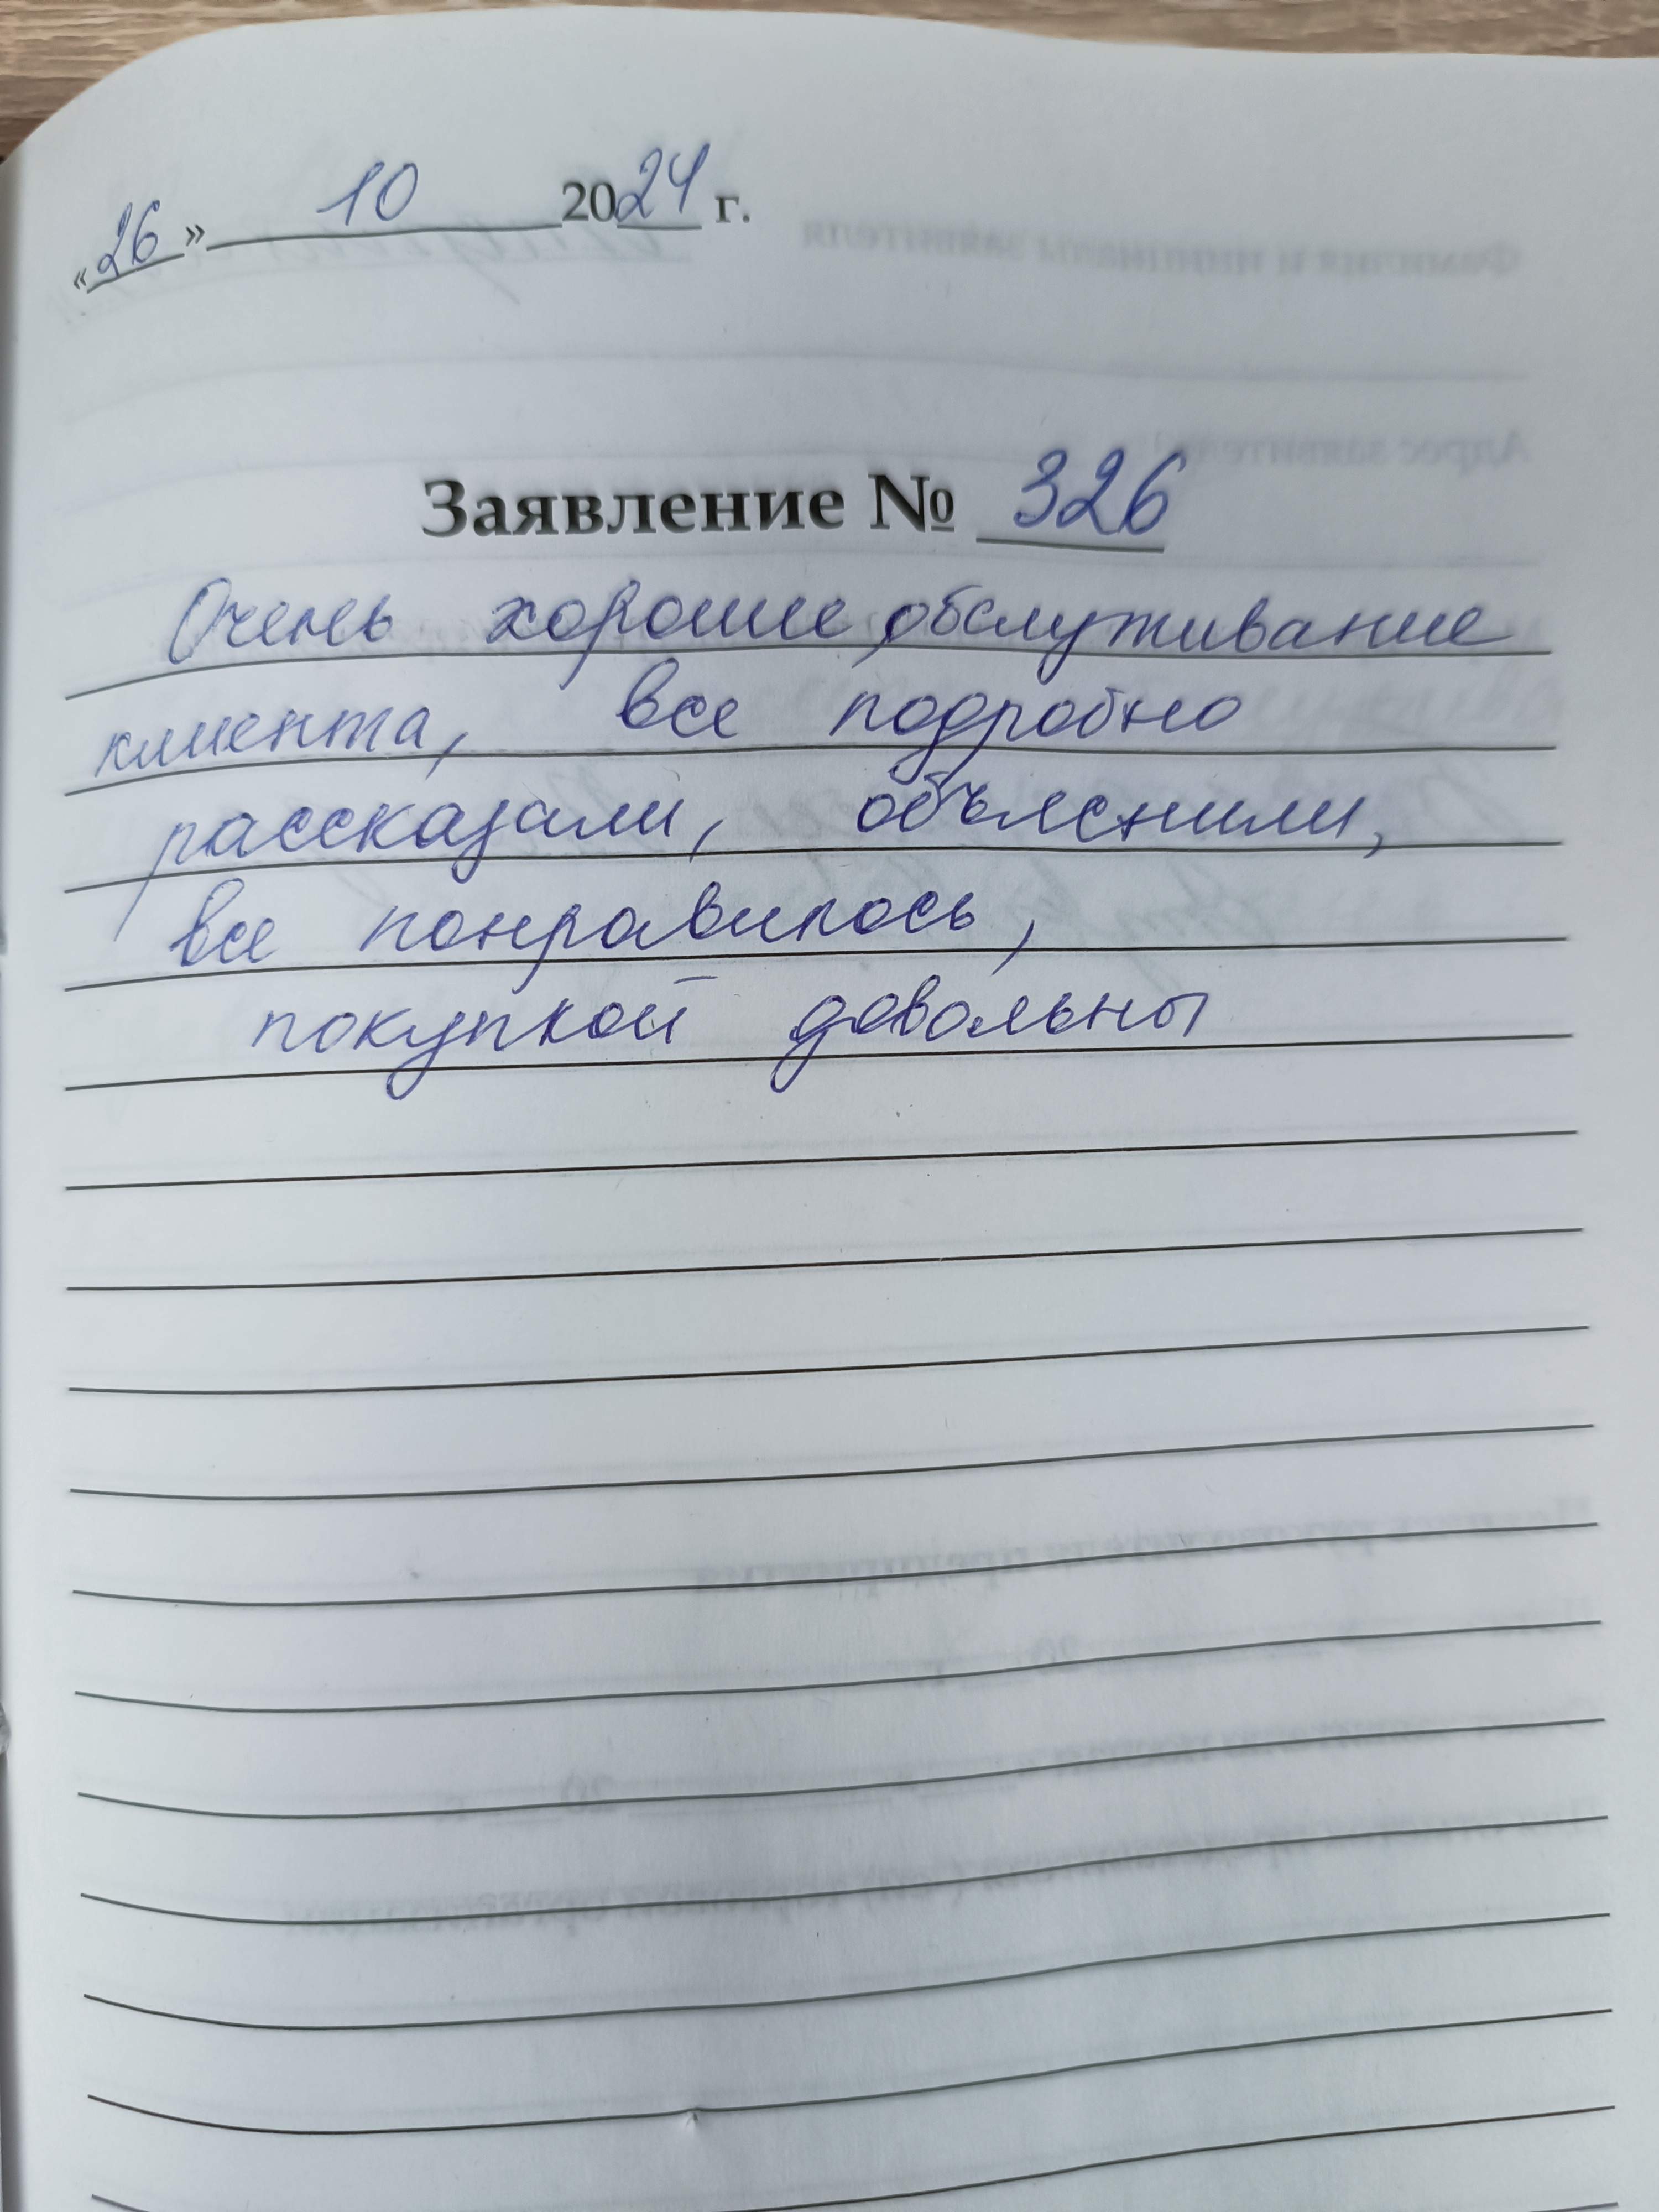 «26» 10 2024 г.
Заявление № 326
Очень хорошие, обслуживание
клиента, все подробно
рассказали, объяснили,
все понравилось,
покупкой довольны